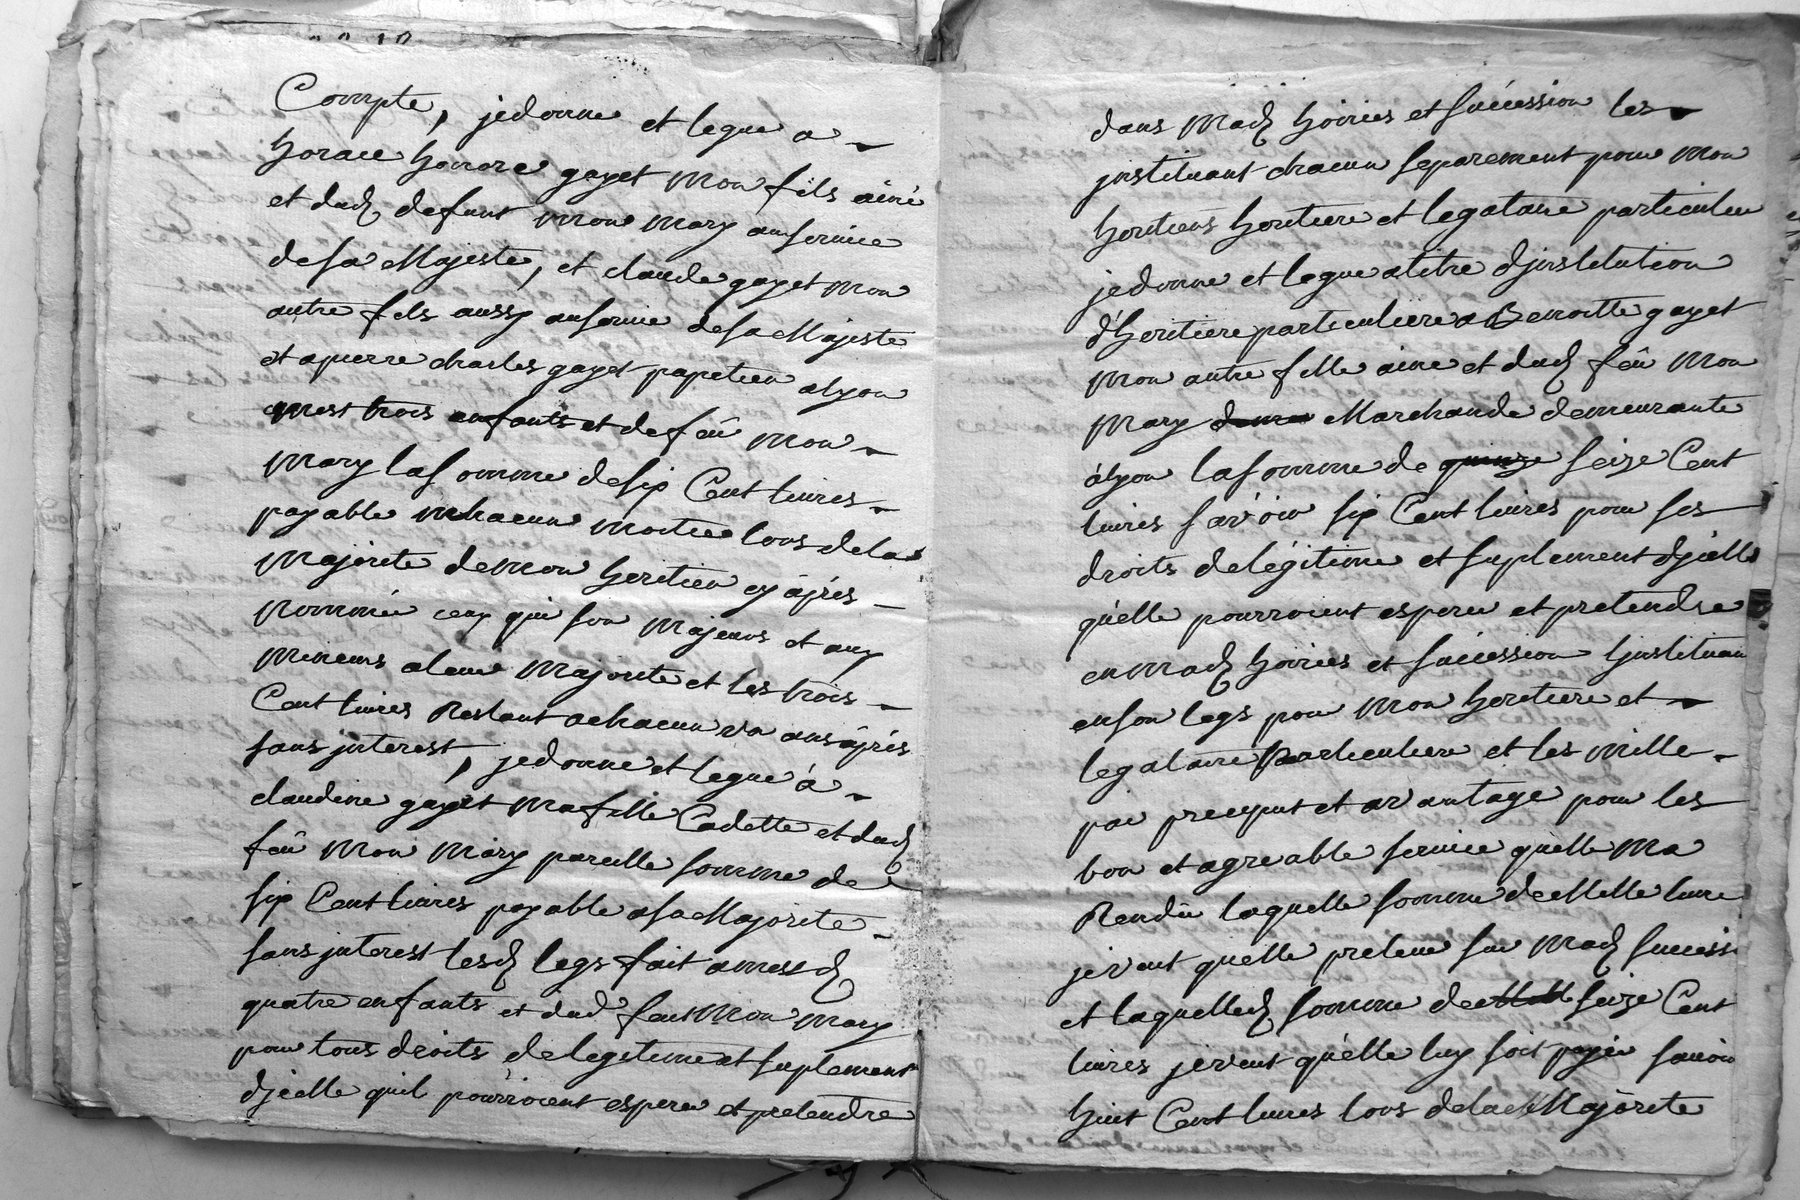 Compte, jedonne et legue a
horace honnore gayet mon fils ainé
et dud defunt mon mary au service
desa Majeste, et claude gayet mon
autre fils aussy au service desa Majeste
et a pierre charles gayet papetier a lyon
mest trois enfants et de feû mon
mary la somme de six Cent livres
payable a chacun moitié lors dela
majorite demon heritier cy âprés
nommé ceux qui son majeurs et aux
mineurs a leur majorite et les trois
Cent livres Restant a chacun un ans âprés
sans jnterest, je donne et legue à
claudine gayet ma fille Cadette et dud
feû mon mary pareille somme de
six Cent livres payable a sa Majorite
sans jnterest lesd legs fait a mesd
quatre enfants et dud feut mon mary
pour tous droits de legitime et suplement
djcelle quil pourroient esperer et pretendre
dans mad hoiries et succession les
jnstituant chacun separement pour mon
heritiers heritiere et legataire particulier
je donne et legue a titre djnstitution
d'heritiere particuliere a Benoitte gayet
mon autre fille ainé et dud feû mon
mary Marchande demeurante
à lyon la somme de quinze seize Cent
livres sav'oir six Cent livres pour ses
droits de legitime et suplement djcelle
qu'elle pourroient esperer et pretendre
en mad hoiries et succession Ljnstituan
en son legs pour mon heritiere et
legataire particuliere et les mille
par preciput et avantage pour les
bon et agreable service qu'elle ma
Rendu laquelle somme de Mille livre
je veut quelle preleve sur mad success
et laquelled somme de seize Cent
livres je veut qu'elle luy soit payée savoir
huit Cent livres lors dela Majorite